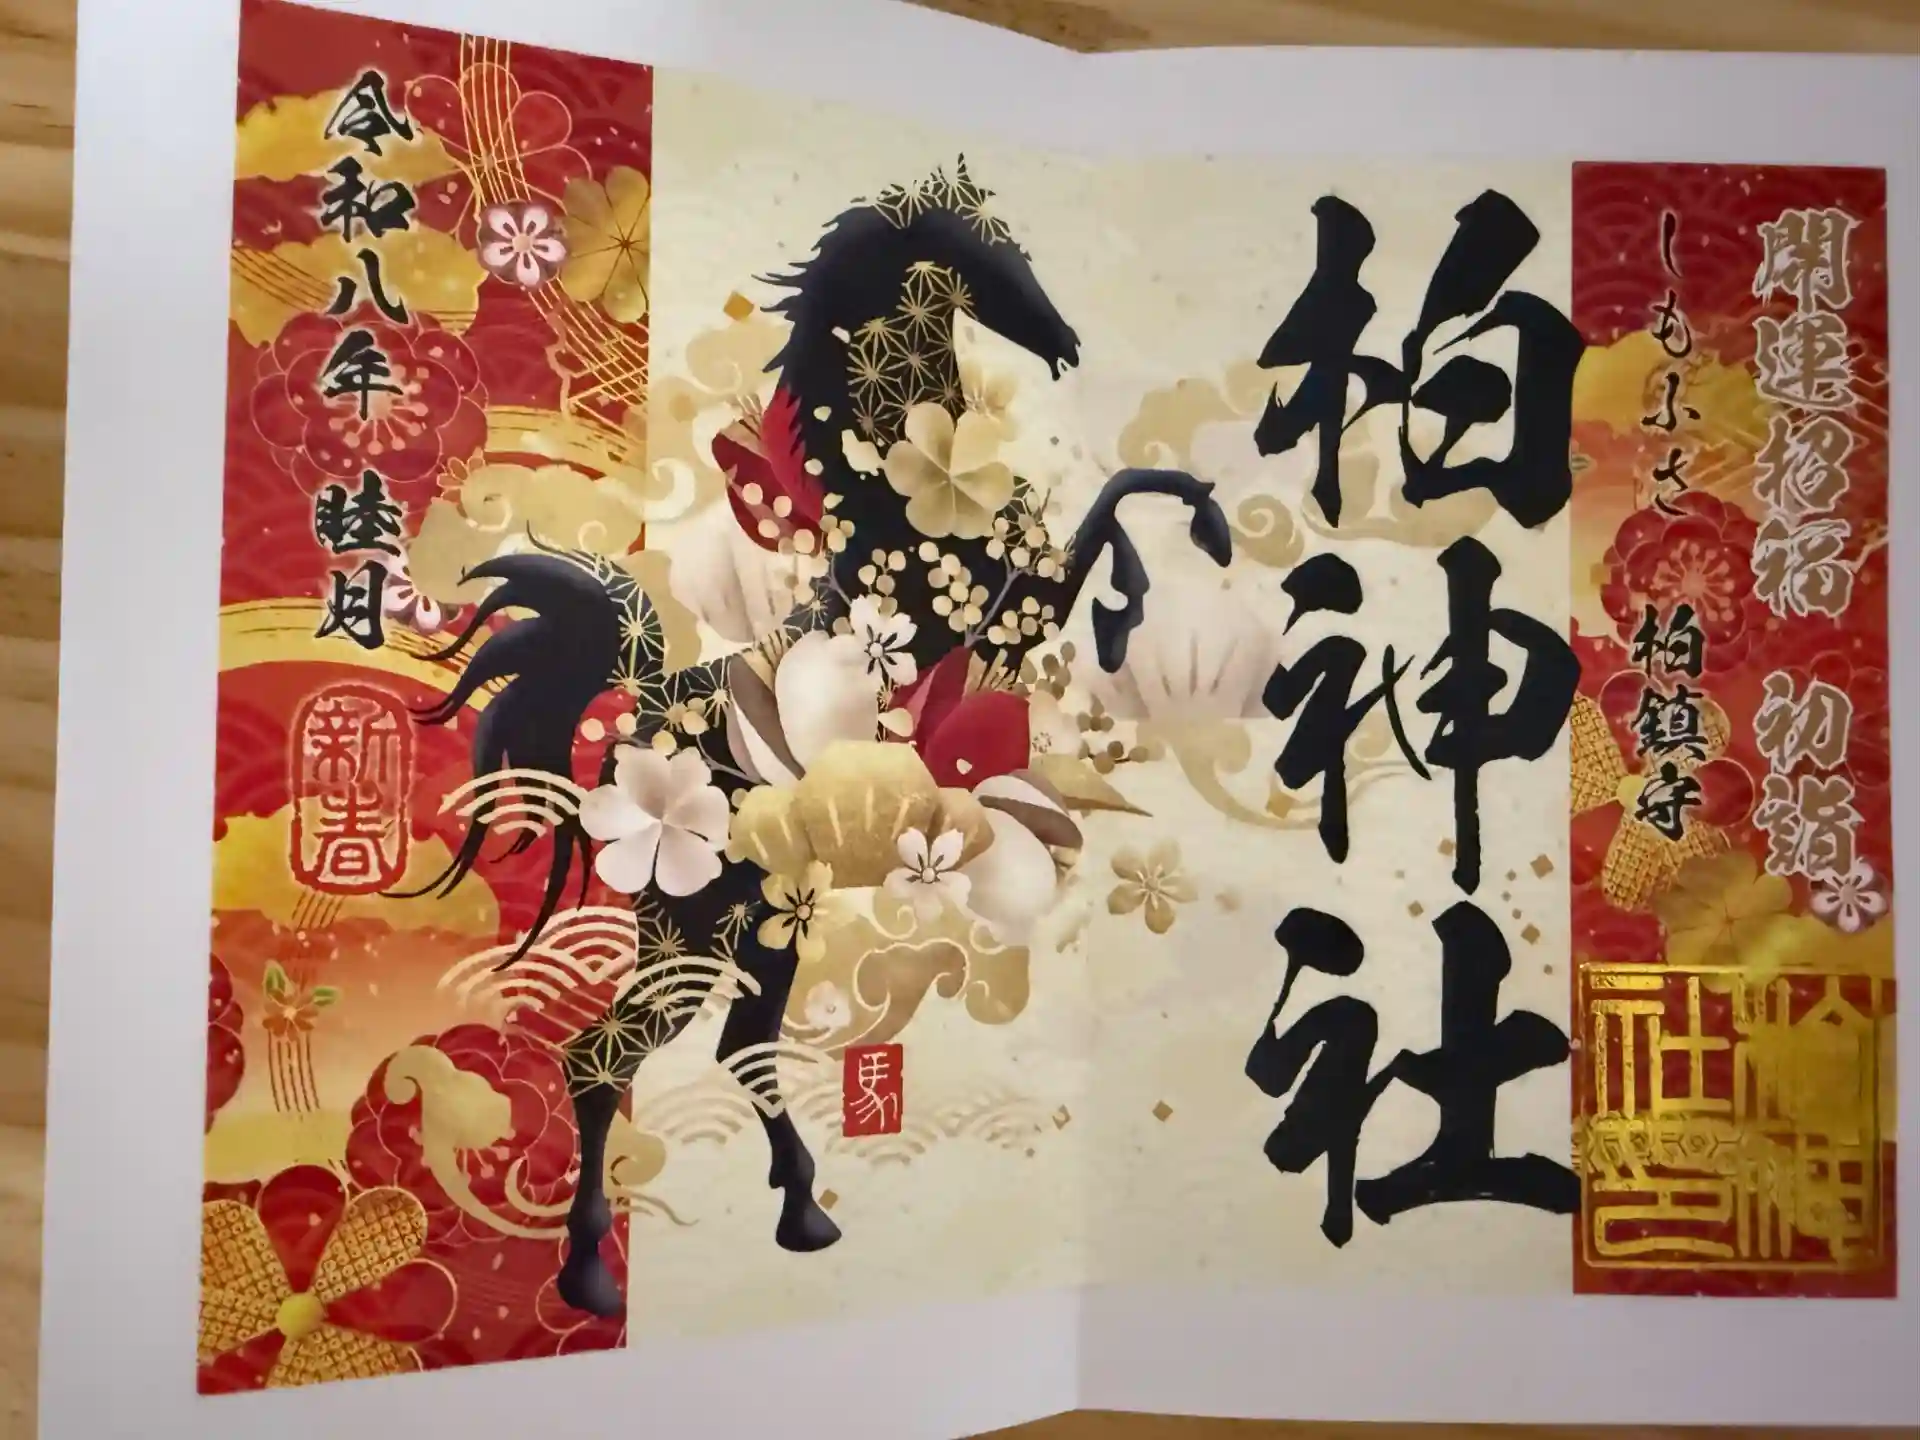 開運招福 初詣
しもふさ 柏鎮守
柏神社
馬
令和八年 睦月
新春